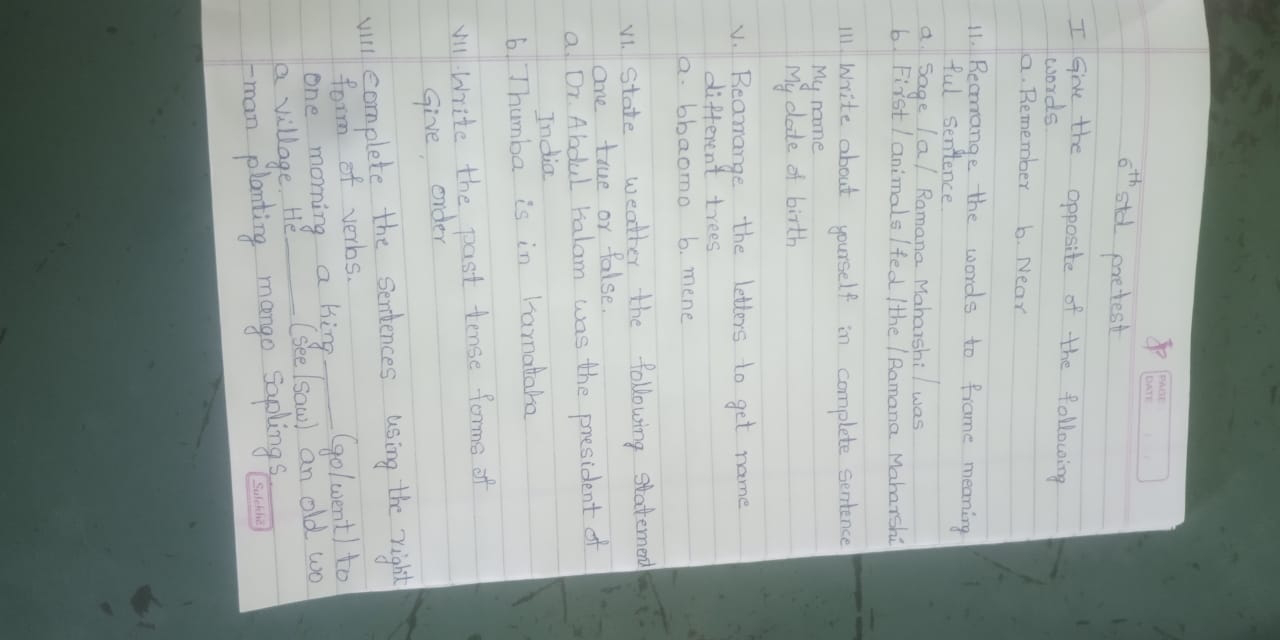 PAGE:
DATE:
6th std pretest
I Give the opposite of the following
words
a. Remember b. Near
II. Rearrange the words to frame meaning
ful sentence
a. Sage /a/ Ramana Maharshi / was
b. First / animals / fed / the / Ramana Maharshi
III. Write about yourself in complete sentence
My name
My date of birth
V. Rearrange the letters to get name
different trees
a. bbaomo b. mene
VI. State weather the following statement
are true or false.
a. Dr. Abdul Kalam was the president of
India
b. Thumba is in Karnataka
VII. Write the past tense forms of
Give, order
VIII. Complete the sentences using the right
form of verbs.
One morning a king ____ (go/went) to
a village. He ____ (see/saw) an old wo
-man planting mango saplings.
Sulekha